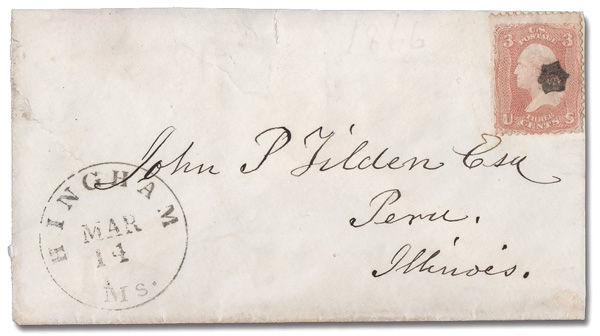 1866
U.S.
POSTAGE
3 3
THREE
U CENTS S
John P Tilden Esq
Peru.
Illinois.
HINGHAM
MAR
14
Ms.